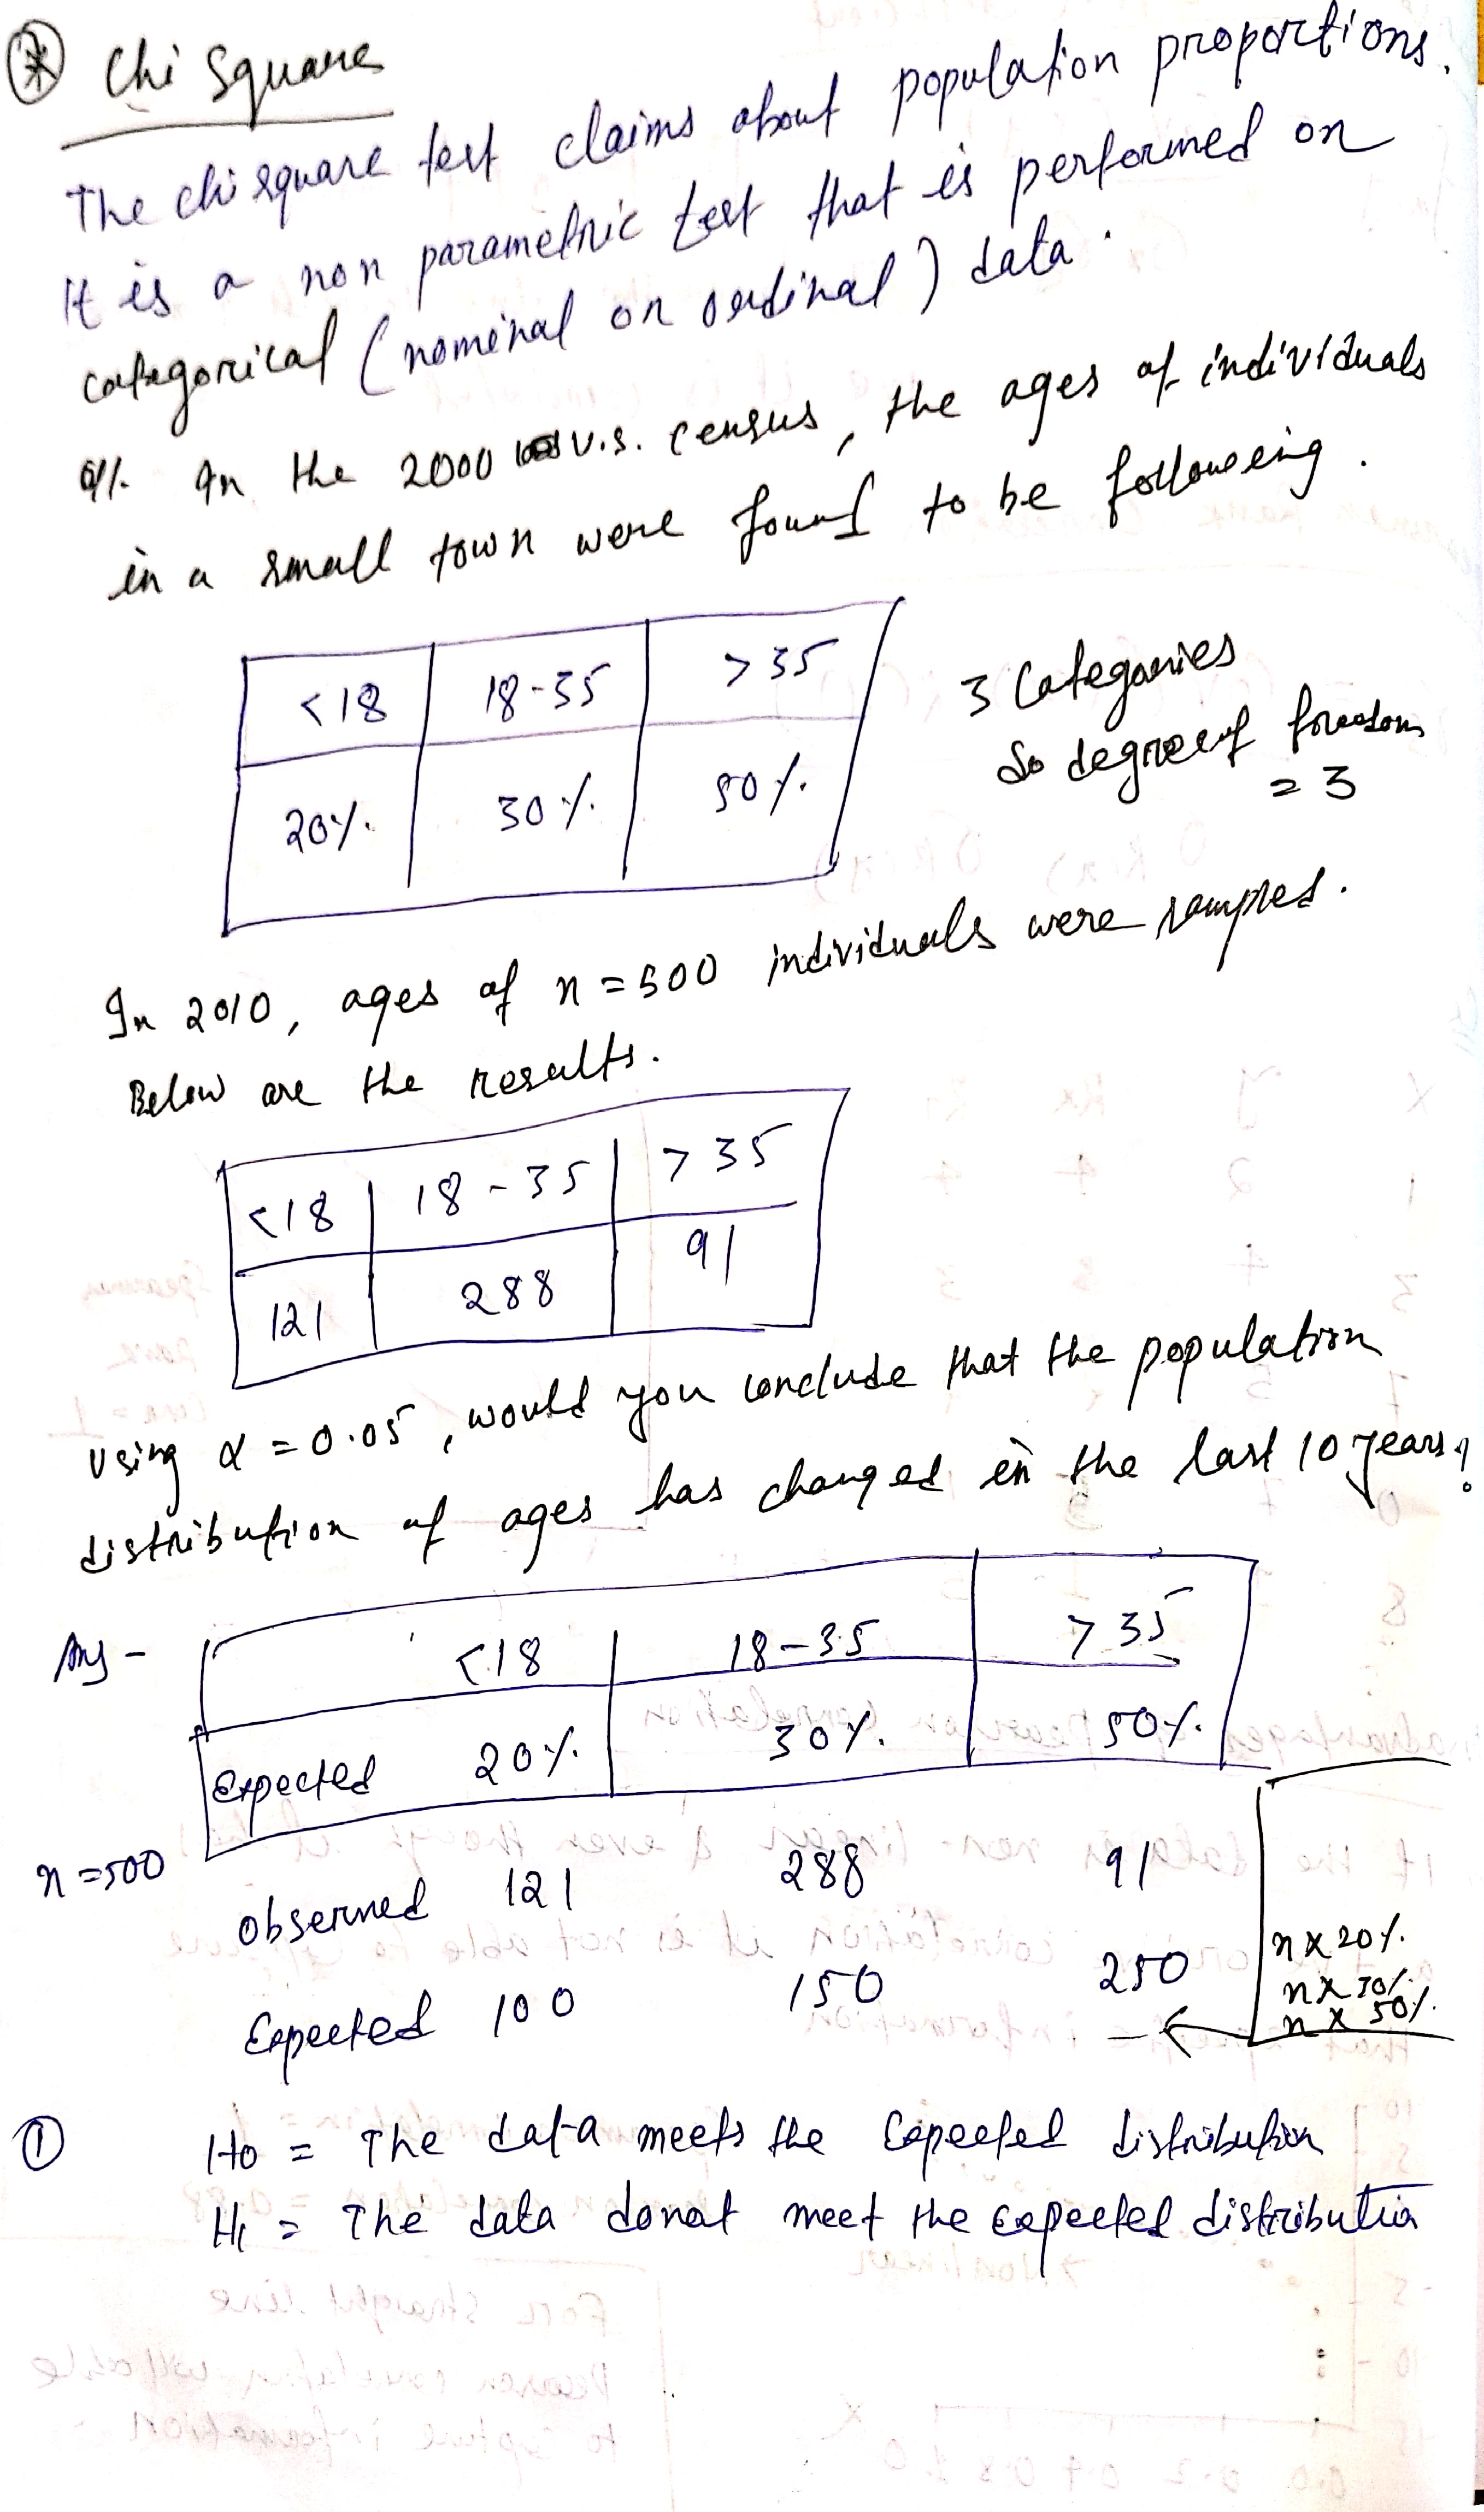 Chi Square
The chi square test claims about population proportions.
It is a non parametric test that is performed on
categorical (nominal or ordinal) data.
In the 2000 U.S. census, the ages of individuals
in a small town were found to be following.
<18 18-35 >35
20% 30% 50%
3 Categories
So degree of freedom
= 3
In 2010, ages of n = 500 individuals were samples.
Below are the results.
<18 18-35 >35
121 288 91
Using α = 0.05, would you conclude that the population
distribution of ages has changed in the last 10 years?
Ans -
<18 18-35 >35
Expected 20% 30% 50%
n = 500
Observed 121 288 91
Expected 100 150 250
n x 20%
n x 30%
n x 50%
①
H0 = The data meets the Expected distribution
H1 = The data donot meet the expected distribution